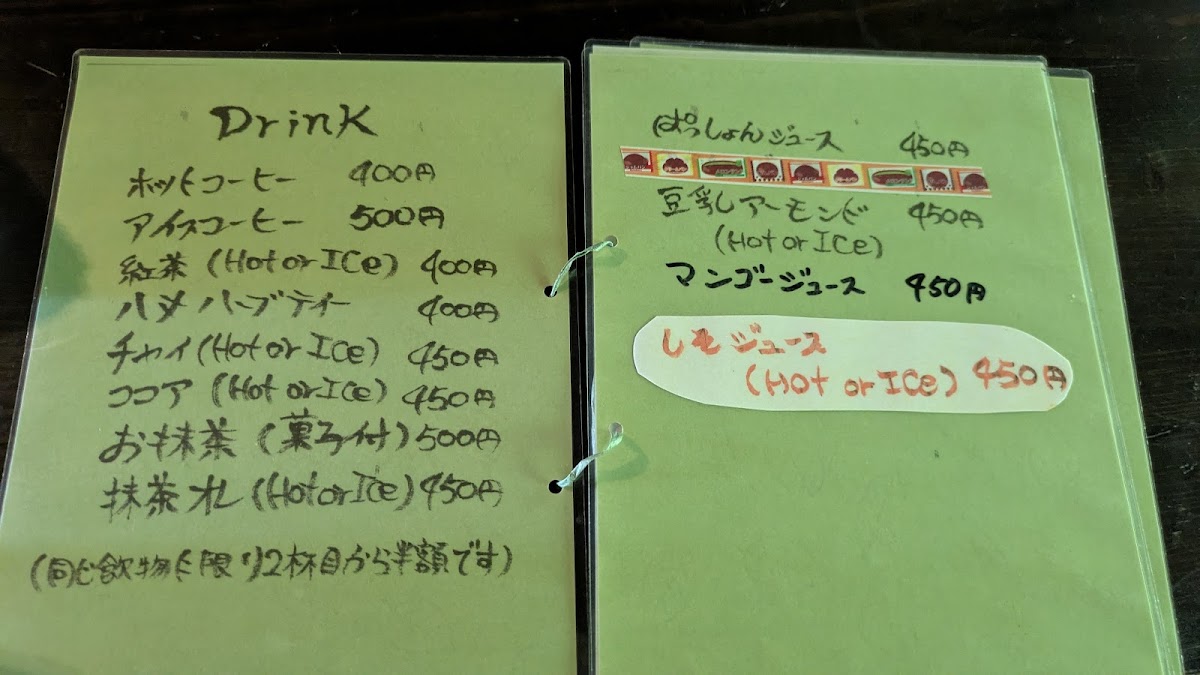 Drink
ホットコーヒー 400円
アイスコーヒー 500円
紅茶 (Hot or ICe) 400円
ハメハーブティー 400円
チャイ (Hot or ICe) 450円
ココア (Hot or ICe) 450円
お抹茶 (菓子付) 500円
抹茶オレ (Hot or Ice) 450円
(同じ飲物に限り2杯目から半額です)
ぱっしょんジュース 450円
豆乳しアーモンド 450円
(Hot or ICe)
マンゴージュース 450円
しそジュース
(Hot or ICe) 450円